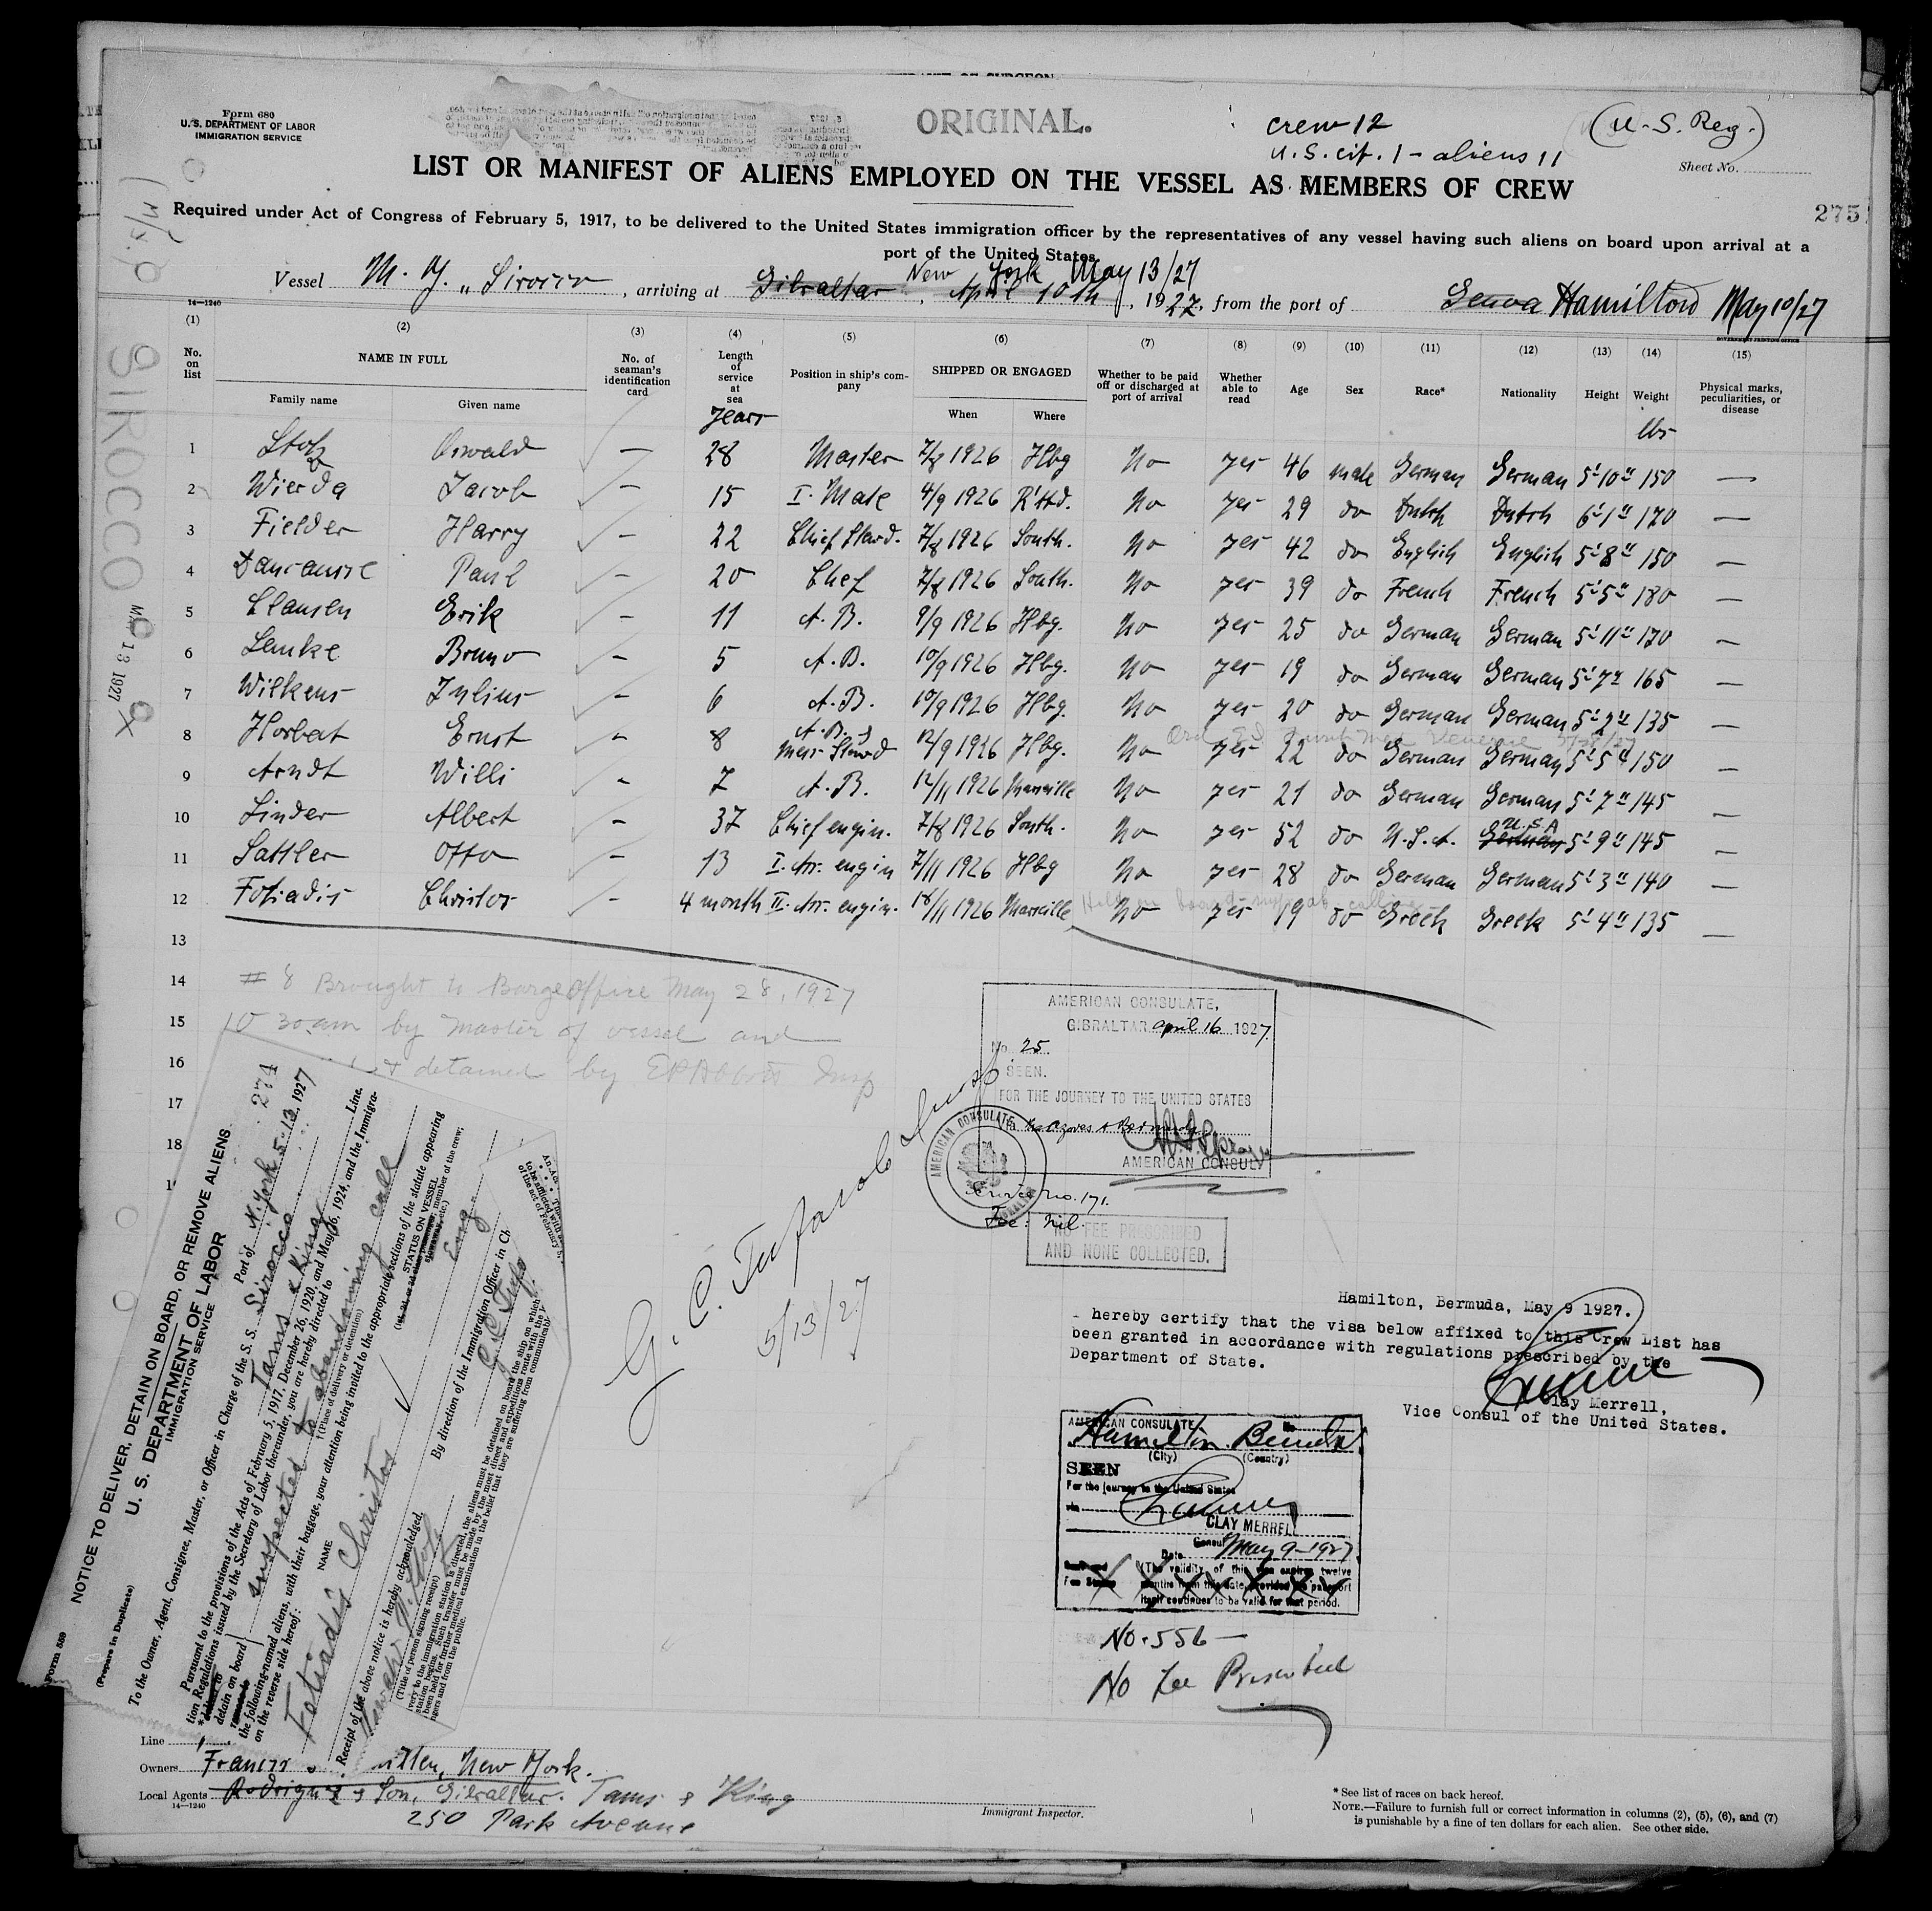 Form 680
U. S. DEPARTMENT OF LABOR
IMMIGRATION SERVICE
ORIGINAL.
crew 12
U.S. cit. 1 - aliens 11
(U.S. Reg.)
Sheet No.
LIST OR MANIFEST OF ALIENS EMPLOYED ON THE VESSEL AS MEMBERS OF CREW
275
Required under Act of Congress of February 5, 1917, to be delivered to the United States immigration officer by the representatives of any vessel having such aliens on board upon arrival at a
port of the United States
New York May 13/27
Vessel M. Y. „Sirocco , arriving at Gibraltar , April 10th , 1927, from the port of Genoa Hamilton May 10/27
14—1240
GOVERNMENT PRINTING OFFICE
(1) (2) (3) (4) (5) (6) (7) (8) (9) (10) (11) (12) (13) (14) (15)
No. on list NAME IN FULL No. of seaman's identification card Length of service at sea Position in ship's company SHIPPED OR ENGAGED Whether to be paid off or discharged at port of arrival Whether able to read Age Sex Race* Nationality Height Weight Physical marks, peculiarities, or disease
Family name Given name When Where
years lbs
1 Stolz Oswald — 28 Master 7/8 1926 Hbg No yes 46 male German German 5'10" 150 —
2 Wierda Jacob — 15 I. Mate 4/9 1926 R'ttd. No yes 29 do Dutch Dutch 6'1" 170 —
3 Fielder Harry — 22 Chief Stewd. 7/8 1926 South. No yes 42 do English English 5'8" 150 —
4 Paul — 20 Chef 7/8 1926 South. No yes 39 do French French 5'5" 180 —
5 Clausen Erik — 11 A. B. 9/9 1926 Hbg. No yes 25 do German German 5'11" 170 —
6 Lemke Bruno — 5 A. B. 10/9 1926 Hbg. No yes 19 do German German 5'7" 165 —
7 Wilkens Julius — 6 A. B. 10/9 1926 Hbg. No yes 20 do German German 5'2" 135 —
8 Horbat Ernst — 8 A. B. & Mess Stewd 12/9 1926 Hbg. No yes 22 do German German 5'5" 150 —
9 Arndt Willi — 7 A. B. 12/11 1926 Marseille No yes 21 do German German 5'7" 145 —
10 Linder Albert — 37 Chief engin. 7/8 1926 South. No yes 52 do U.S.A. German U.S.A 5'9" 145 —
11 Sattler Otto — 13 I. Ass. engin 7/11 1926 Hbg No yes 28 do German German 5'3" 140 —
12 Fotiadis Christos — 4 month II. Ass. engin. 18/11 1926 Marseille No yes 19 do Greek Greek 5'4" 135 —
13
14
15
16
17
18
# 8 Brought to Barge Office May 28, 1927
10 30 am by Master of vessel and
detained by Insp
SIROCCO
MAY 13 1927
AMERICAN CONSULATE,
GIBRALTAR april 16 1927.
No. 25.
SEEN.
FOR THE JOURNEY TO THE UNITED STATES
via the Azores & Bermuda
AMERICAN CONSUL
AMERICAN CONSULATE
GIBRALTAR
Service no. 171.
Fee: nil.
NO FEE PRESCRIBED
AND NONE COLLECTED.
5/13/27
Hamilton, Bermuda, May 9 1927.
I hereby certify that the visa below affixed to this Crew List has
been granted in accordance with regulations prescribed by the
Department of State.
Clay Merrell,
Vice Consul of the United States.
AMERICAN CONSULATE No.
Hamilton Bermuda
(City) (Country)
SEEN
For the journey to the United States
via
CLAY MERRELL
Consul
Date May 9-1927
(The validity of this visa expires twelve
months from this date, provided the passport
itself continues to be valid for that period.
No. 556 —
No Fee Prescribed
Form 559
(Prepare in Duplicate)
NOTICE TO DELIVER, DETAIN ON BOARD, OR REMOVE ALIENS
U. S. DEPARTMENT OF LABOR
IMMIGRATION SERVICE
274
Port of N. York 5-13, 1927
To the Owner, Agent, Consignee, Master, or Officer in Charge of the S. S. Sirocco
Tams & King Line.
Pursuant to the provisions of the Acts of February 5, 1917, December 26, 1920, and May 26, 1924, and the Immigra-
tion Regulations issued by the Secretary of Labor thereunder, you are hereby directed to
detain on board
inspected to abandoning call
†(Place of delivery or detention)
the following-named aliens, with their baggage, your attention being invited to the appropriate sections of the statute appearing
on the reverse side hereof:
NAME
STATUS ON VESSEL
Fotiadis Christos
Eng
By direction of the Immigration Officer in Ch
Receipt of the above notice is hereby acknowledged,
(Title of person signing receipt)
Line
Owners Francis New York.
Local Agents Rodrigues & Son, Gibraltar. Tams & King
14—1240
250 Park Avenue
Immigrant Inspector.
* See list of races on back hereof.
NOTE.—Failure to furnish full or correct information in columns (2), (5), (6), and (7)
is punishable by a fine of ten dollars for each alien. See other side.